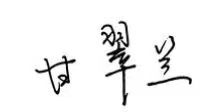 甘翠兰